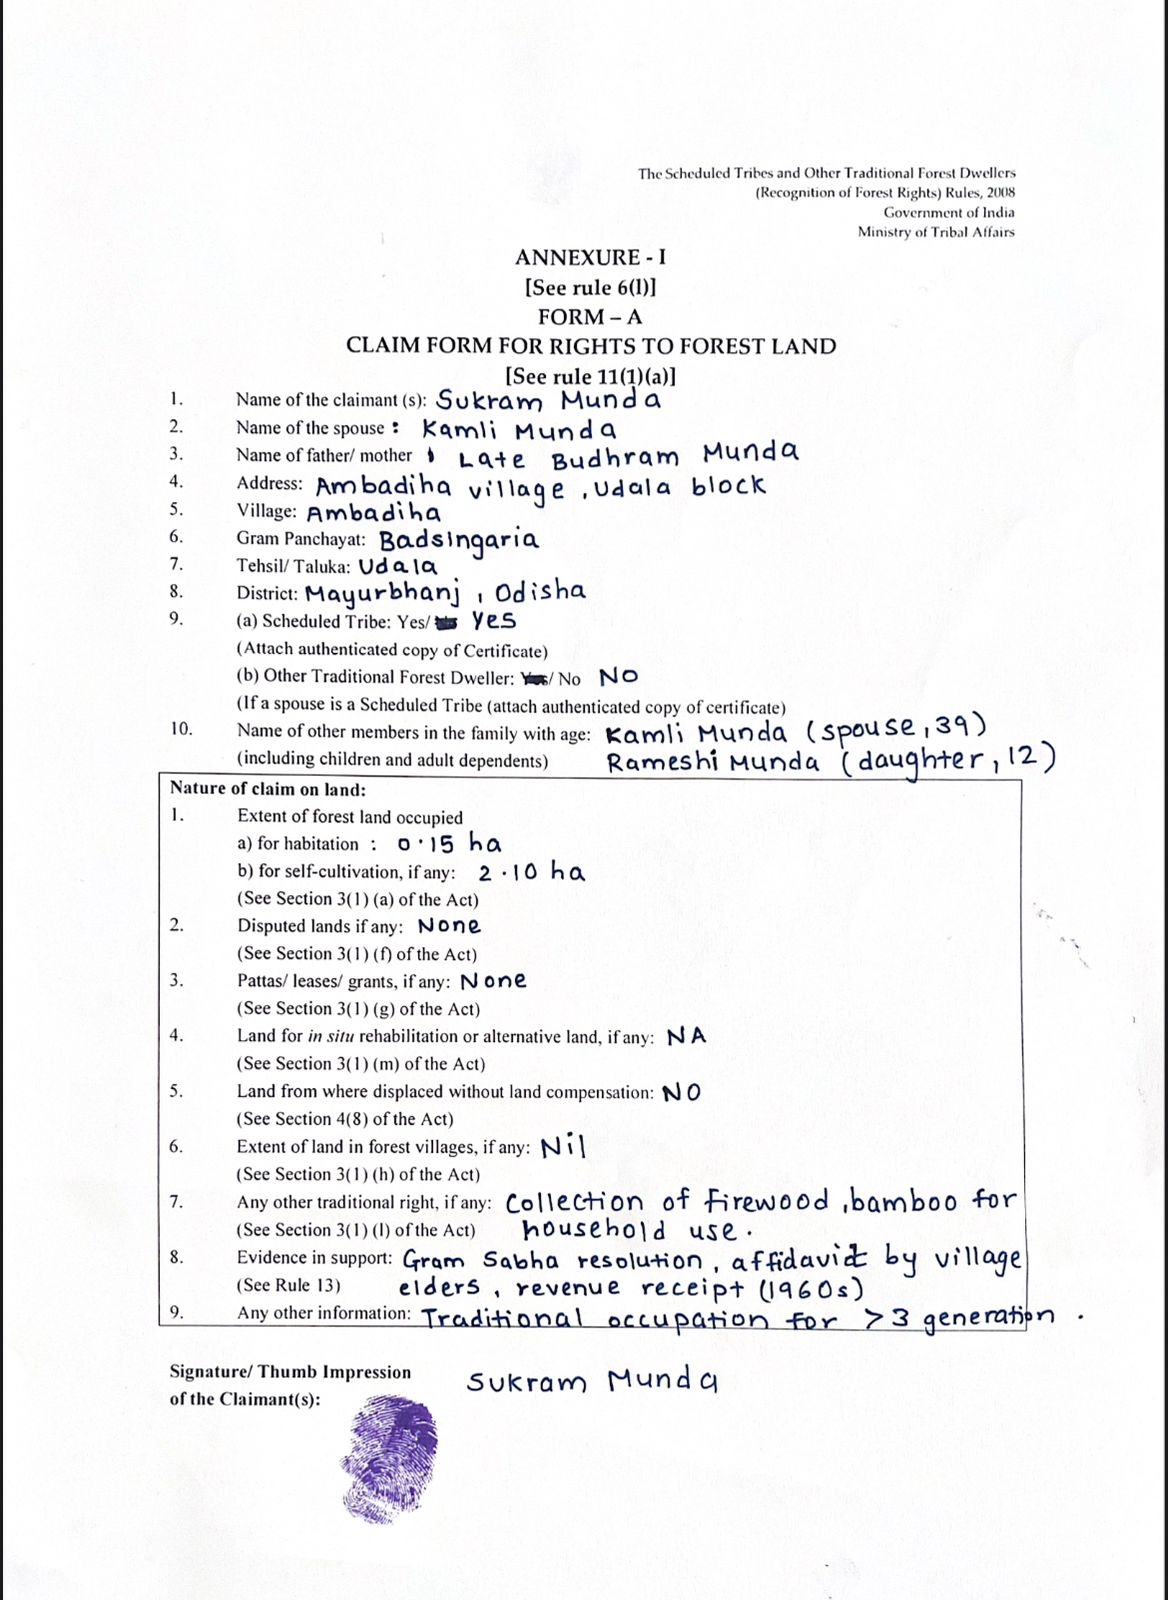 The Scheduled Tribes and Other Traditional Forest Dwellers
(Recognition of Forest Rights) Rules, 2008
Government of India
Ministry of Tribal Affairs
ANNEXURE - I
[See rule 6(l)]
FORM – A
CLAIM FORM FOR RIGHTS TO FOREST LAND
[See rule 11(1)(a)]
1. Name of the claimant (s): Sukram Munda
2. Name of the spouse : Kamli Munda
3. Name of father/ mother : Late Budhram Munda
4. Address: Ambadiha village , Udala block
5. Village: Ambadiha
6. Gram Panchayat: Badsingaria
7. Tehsil/ Taluka: Udala
8. District: Mayurbhanj , Odisha
9. (a) Scheduled Tribe: Yes/ Yes
(Attach authenticated copy of Certificate)
(b) Other Traditional Forest Dweller: Yes/ No NO
(If a spouse is a Scheduled Tribe (attach authenticated copy of certificate)
10. Name of other members in the family with age: Kamli Munda (spouse, 39)
(including children and adult dependents) Rameshi Munda (daughter, 12)
Nature of claim on land:
1. Extent of forest land occupied
a) for habitation : 0.15 ha
b) for self-cultivation, if any: 2.10 ha
(See Section 3(1) (a) of the Act)
2. Disputed lands if any: None
(See Section 3(1) (f) of the Act)
3. Pattas/ leases/ grants, if any: None
(See Section 3(1) (g) of the Act)
4. Land for in situ rehabilitation or alternative land, if any: NA
(See Section 3(1) (m) of the Act)
5. Land from where displaced without land compensation: NO
(See Section 4(8) of the Act)
6. Extent of land in forest villages, if any: Nil
(See Section 3(1) (h) of the Act)
7. Any other traditional right, if any: Collection of firewood , bamboo for
(See Section 3(1) (l) of the Act) household use .
8. Evidence in support: Gram Sabha resolution , affidavit by village
(See Rule 13) elders , revenue receipt (1960s)
9. Any other information: Traditional occupation for >3 generation .
Signature/ Thumb Impression Sukram Munda
of the Claimant(s):